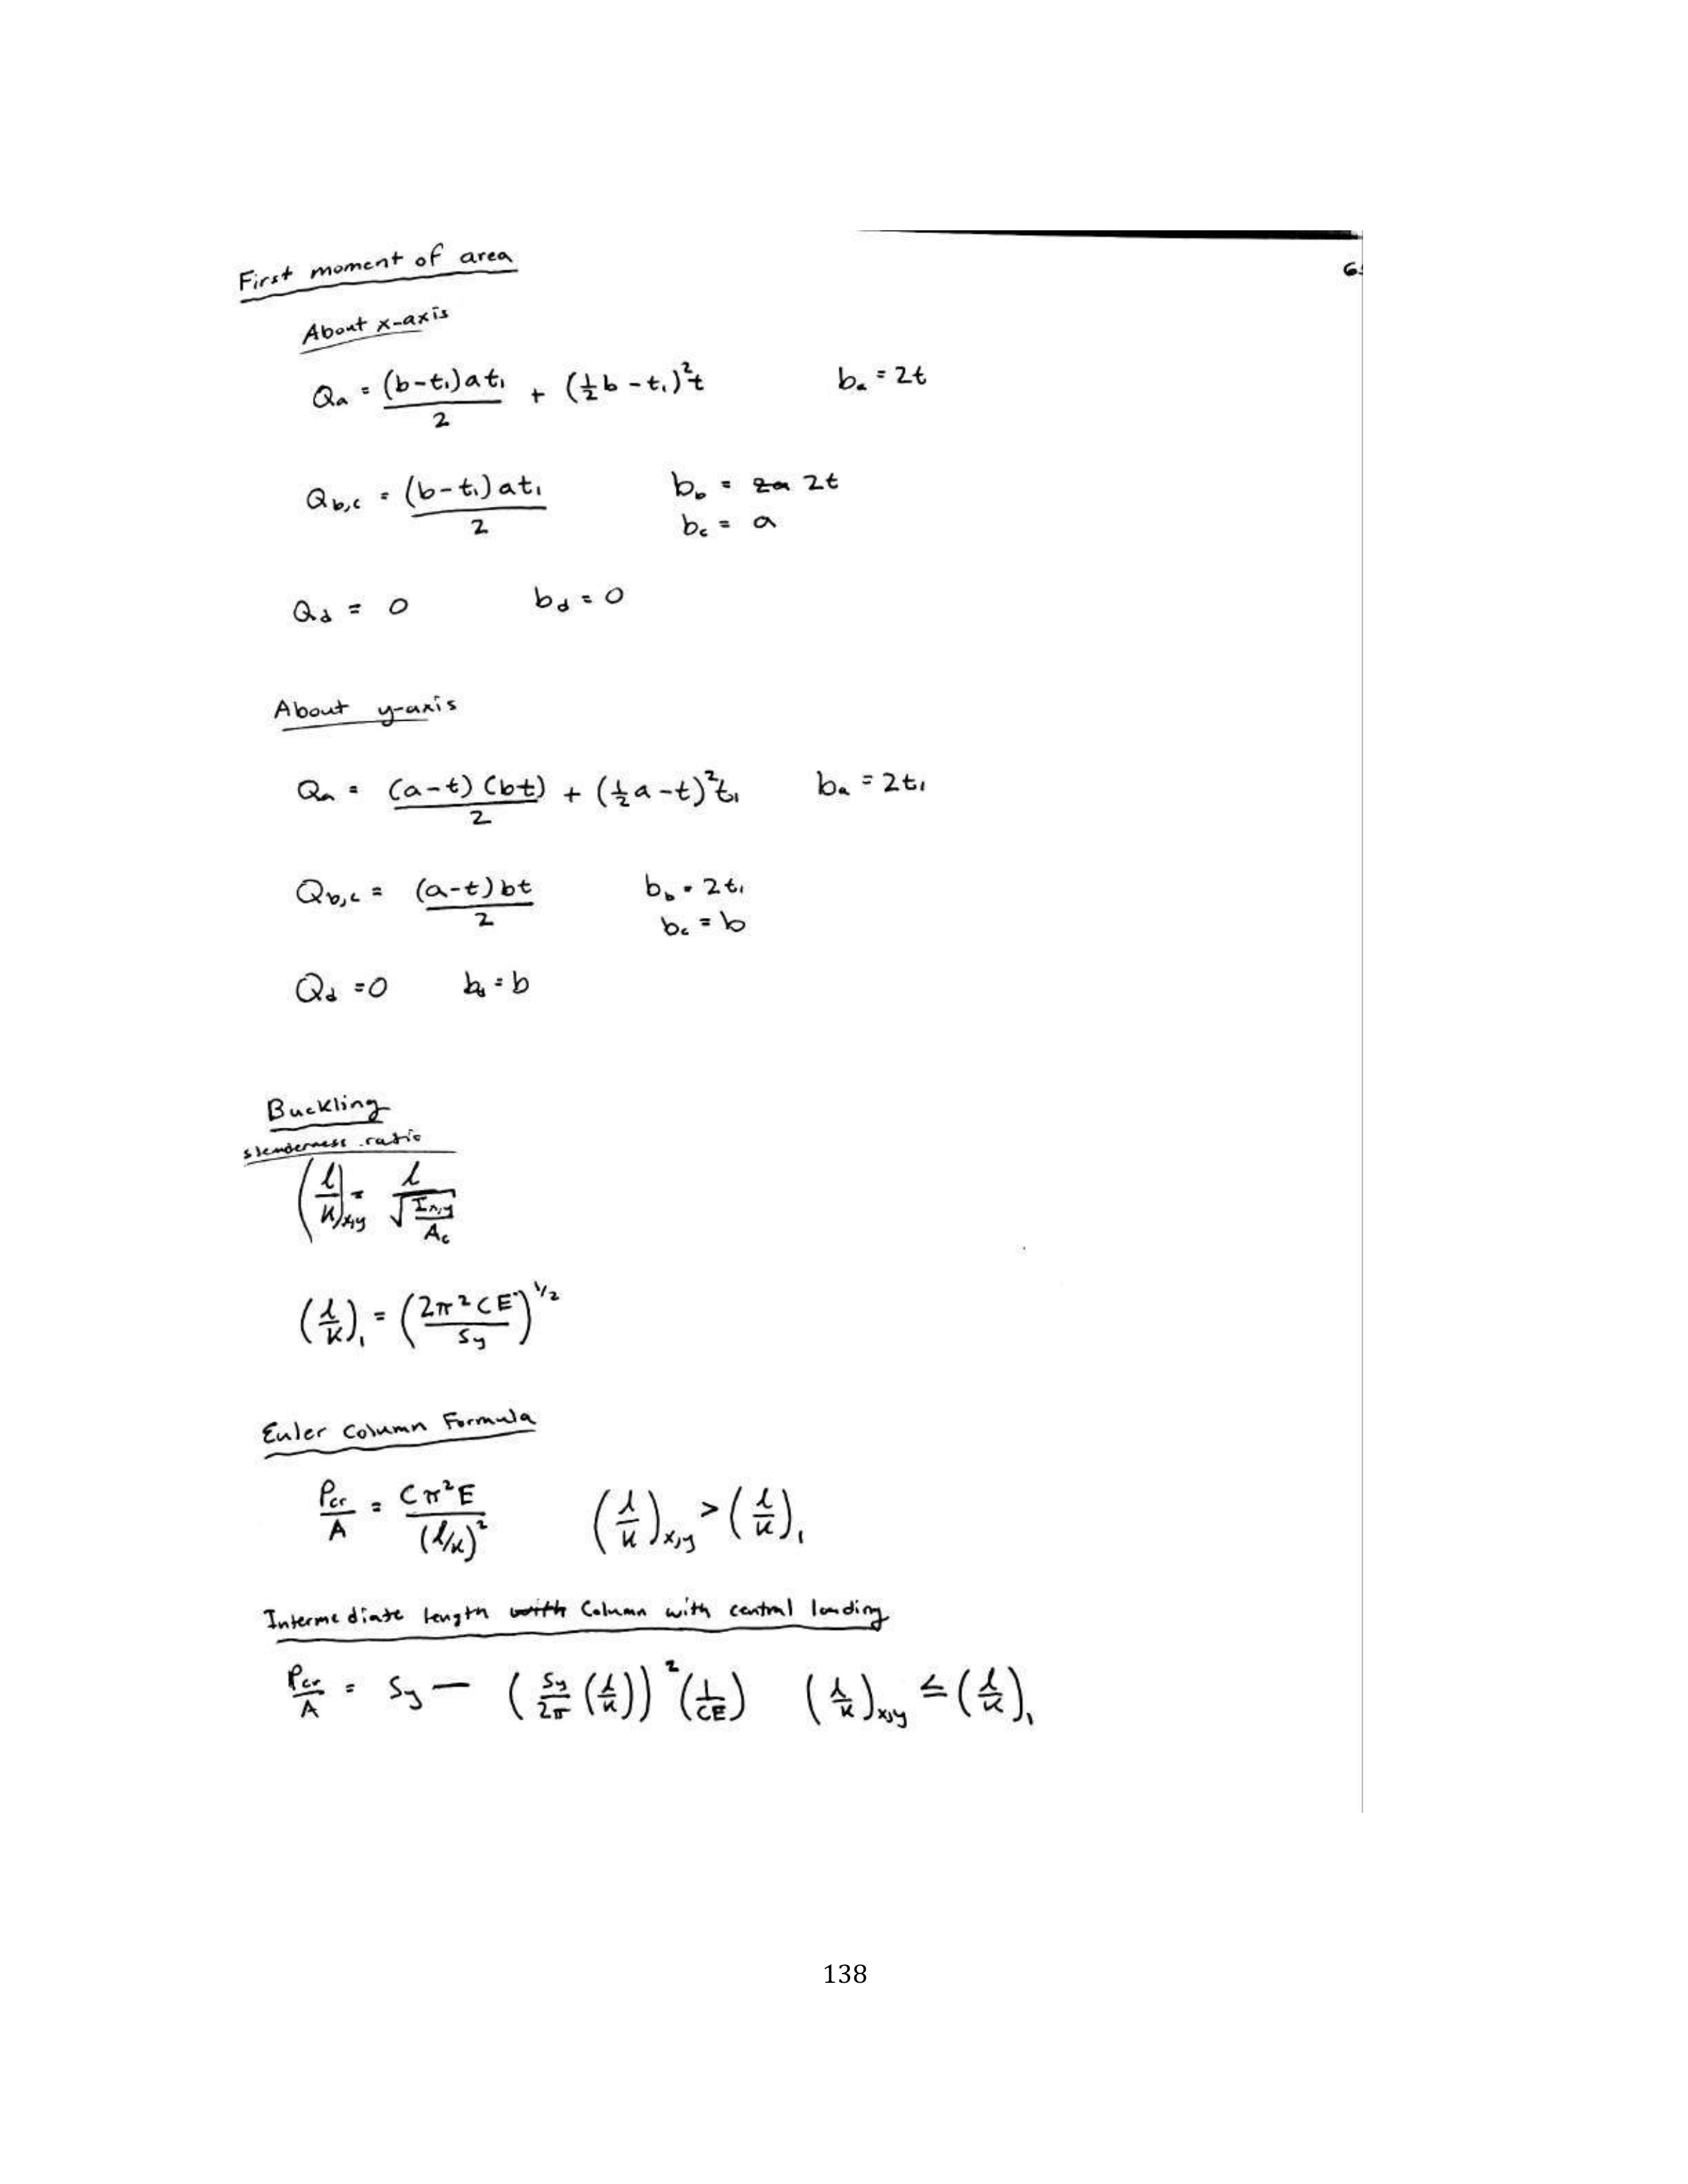 6
First moment of area
About x-axis
Qa = (b-t₁)at₁/2 + (½b - t₁)²t    ba = 2t
Qb,c = (b-t₁)at₁/2    bb = 2a 2t
bc = a
Qd = 0    bd = 0
About y-axis
Qa = (a-t)(bt)/2 + (½a - t)²t₁    ba = 2t₁
Qb,c = (a-t)bt/2    bb = 2t₁
bc = b
Qd = 0    bd = b
Buckling
slenderness ratio
(l/k)x,y = l/√(Ix,y/Ac)
(l/k)₁ = (2π²CE/Sy)^1/2
Euler Column Formula
Pcr/A = Cπ²E/(l/k)²    (l/k)x,y > (l/k)₁
Intermediate length with Column with central loading
Pcr/A = Sy - (Sy/2π (l/k))² (1/CE)    (l/k)x,y ≤ (l/k)₁
138